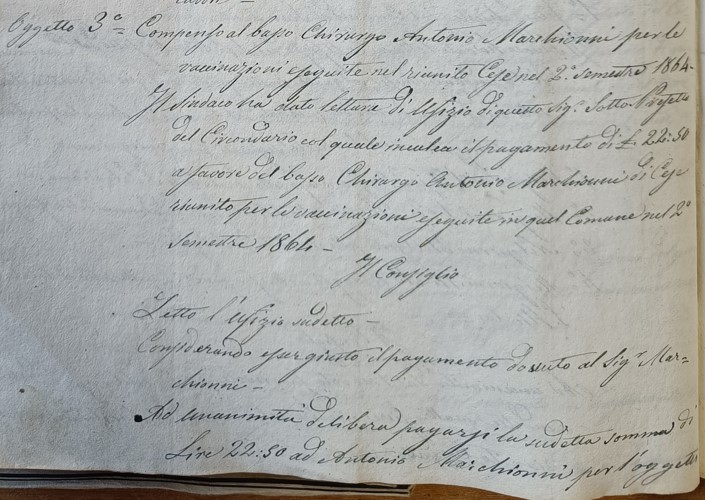 Oggetto 3º= Compenso al basso Chirurgo Antonio Marchionni per le
vaccinazioni eseguite nel riunito Cese nel 2º semestre 1864-
Il Sindaco ha dato lettura di Ufizio di questo Sigr Sotto Prefetto
del Circondario col quale inculca il pagamento di £ 22:50
a favore del basso Chirurgo Antonio Marchionni di Cese
riunito per le vaccinazioni eseguite in quel Comune nel 2º
semestre 1864 -
Il Consiglio
Letto l'Ufizio sudetto -
Considerando esser giusto il pagamento dovuto al Sigr Mar=
chionni -
Ad unanimità delibera pagarsi la sudetta somma di
Lire 22:50 ad Antonio Marchionni per l'oggetto